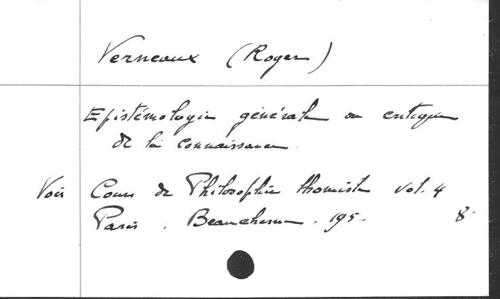 Verneaux (Roger)
Epistémologie générale ou critique
de la connaissance.
Voir Cours de Philosophie thomiste vol. 4
Paris. Beauchesne. 195. 8.